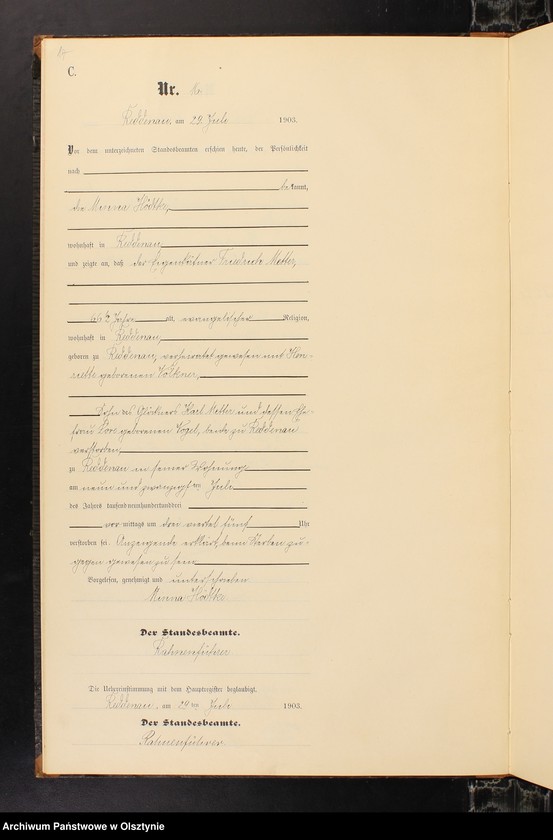 C.
Nr.
Kiddenau, am 29. Juli 1903.
Vor dem unterzeichneten Standesbeamten erschien heute, der Persönlichkeit
nach
bekannt,
die Menna
wohnhaft in Kiddenau
und zeigte an, daß der Eigenkätner Friedrich Metter,
66½ Jahre alt, evangelischer Religion,
wohnhaft in Kiddenau,
geboren zu Kiddenau, verheiratet gewesen mit Hen-
riette geborenen Völkner,
Sohn des Glöckners Karl Metter und dessen Ehe-
frau geborenen Vogel, beide zu Kiddenau
verstorben,
zu Kiddenau in seiner Wohnung
am neun und zwanzigsten Juli
des Jahres tausendneunhundertunddrei
vor mittags um drei viertel fünf Uhr
verstorben sei. Anzeigende erklärt, beim Sterben zu-
gegen gewesen zu sein
Vorgelesen, genehmigt und unterschrieben
Menna
Der Standesbeamte.
Rahnenführer
Die Uebereinstimmung mit dem Hauptregister beglaubigt.
Kiddenau, am 29ten Juli 1903.
Der Standesbeamte.
Rahnenführer.
Archiwum Państwowe w Olsztynie